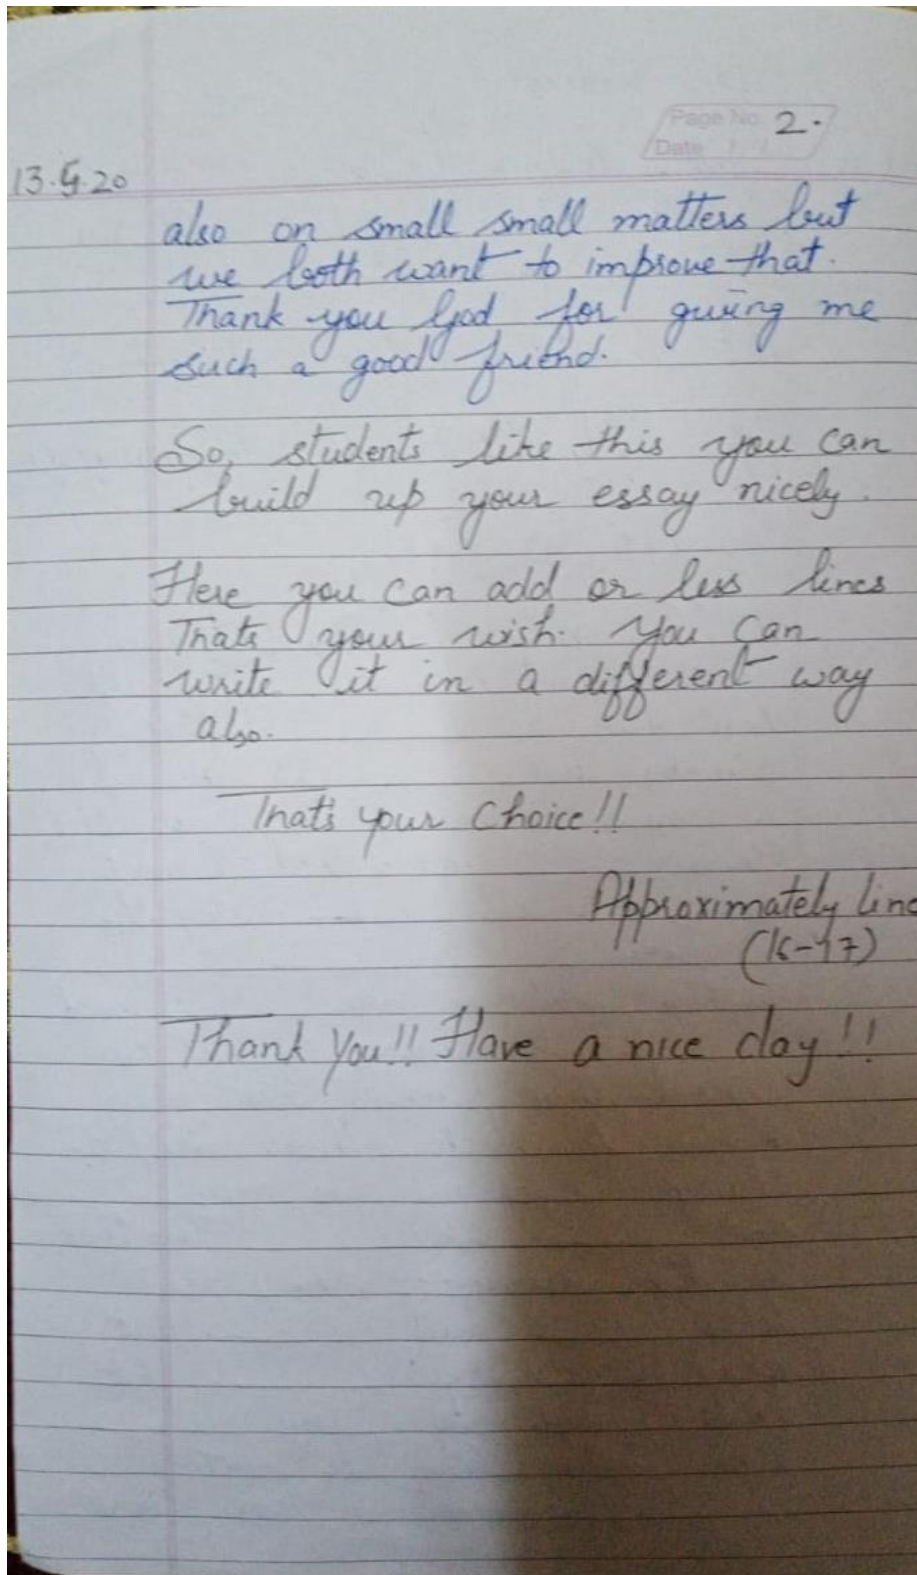 Page No. 2.
Date
13.5.20
also on small small matters but
we both want to improve that.
Thank you God for giving me
such a good friend.
So, students like this you can
build up your essay nicely.
Here you can add or less lines
Thats your wish. You can
write it in a different way
also.
That's your Choice!!
Approximately line
(16-17)
Thank You!! Have a nice day!!